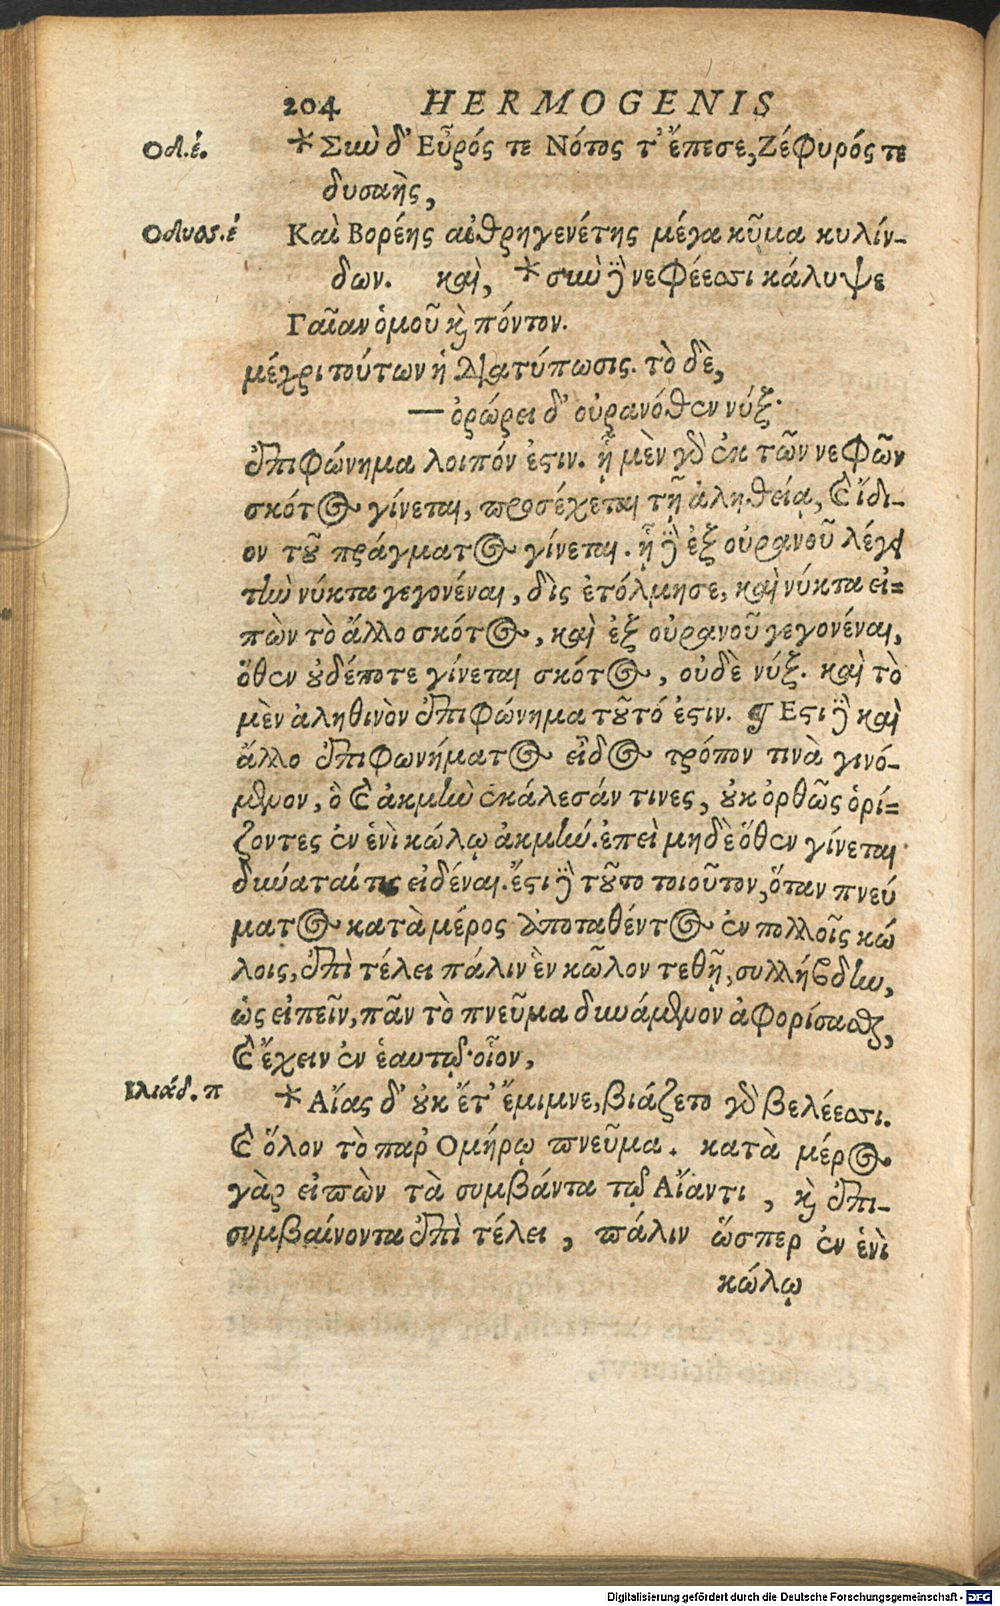 204 HERMOGENIS
Οδ. έ. *Σὺν δ' Εὖρός τε Νότος τ' ἔπεσε, Ζέφυρός τε
δυσαὴς,
Οδυσσ. έ Καὶ Βορέης αἰθρηγενέτης μέγα κῦμα κυλίν-
δων. καὶ, *σὺν δὲ νεφέεσσι κάλυψε
Γαῖαν ὁμοῦ καὶ πόντον.
μέχρι τούτων ἡ διατύπωσις. τὸ δὲ,
—ὀρώρει δ' οὐρανόθεν νύξ·
ἐπιφώνημα λοιπόν ἐστιν. ᾗ μὲν γὰρ ἐκ τῶν νεφῶν
σκότος γίνεται, προσέχεται τῇ ἀληθείᾳ, καὶ ἴδι-
ον τοῦ πράγματος γίνεται. ᾗ δὲ ἐξ οὐρανοῦ λέγει
τὴν νύκτα γεγονέναι, δὶς ἐτόλμησε, καὶ νύκτα εἰ-
πὼν τὸ ἄλλο σκότος, καὶ ἐξ οὐρανοῦ γεγονέναι,
ὅθεν οὐδέποτε γίνεται σκότος, οὐδὲ νύξ. καὶ τὸ
μὲν ἀληθινὸν ἐπιφώνημα τοῦτό ἐστιν. ¶ Εστι δὲ καὶ
ἄλλο ἐπιφωνήματος εἶδος τρόπον τινὰ γινό-
μενον, ὃ καὶ ἀκμὴν ἐκάλεσάν τινες, οὐκ ὀρθῶς ὁρί-
ζοντες ἐν ἑνὶ κώλῳ ἀκμήν. ἐπεὶ μηδὲ ὅθεν γίνεται
δύναταί τις εἰδέναι. ἔστι δὲ τοῦτο τοιοῦτον, ὅταν πνεύ
ματος κατὰ μέρος ἀποταθέντος ἐν πολλοῖς κώ
λοις, ἐπὶ τέλει πάλιν ἓν κῶλον τεθῇ, συλλήβδην,
ὡς εἰπεῖν, πᾶν τὸ πνεῦμα δυνάμενον ἀφορίσασθαι,
καὶ ἔχειν ἐν ἑαυτῷ· οἷον,
Ιλιάδ. π *Αἴας δ' οὐκ ἔτ' ἔμιμνε, βιάζετο γὰρ βελέεσσι.
καὶ ὅλον τὸ παρ' Ομήρῳ πνεῦμα. κατὰ μέρος
γὰρ εἰπὼν τὰ συμβάντα τῷ Αἴαντι, καὶ ἐπι-
συμβαίνοντα ἐπὶ τέλει, πάλιν ὥσπερ ἐν ἑνὶ
κώλῳ
Digitalisierung gefördert durch die Deutsche Forschungsgemeinschaft - DFG